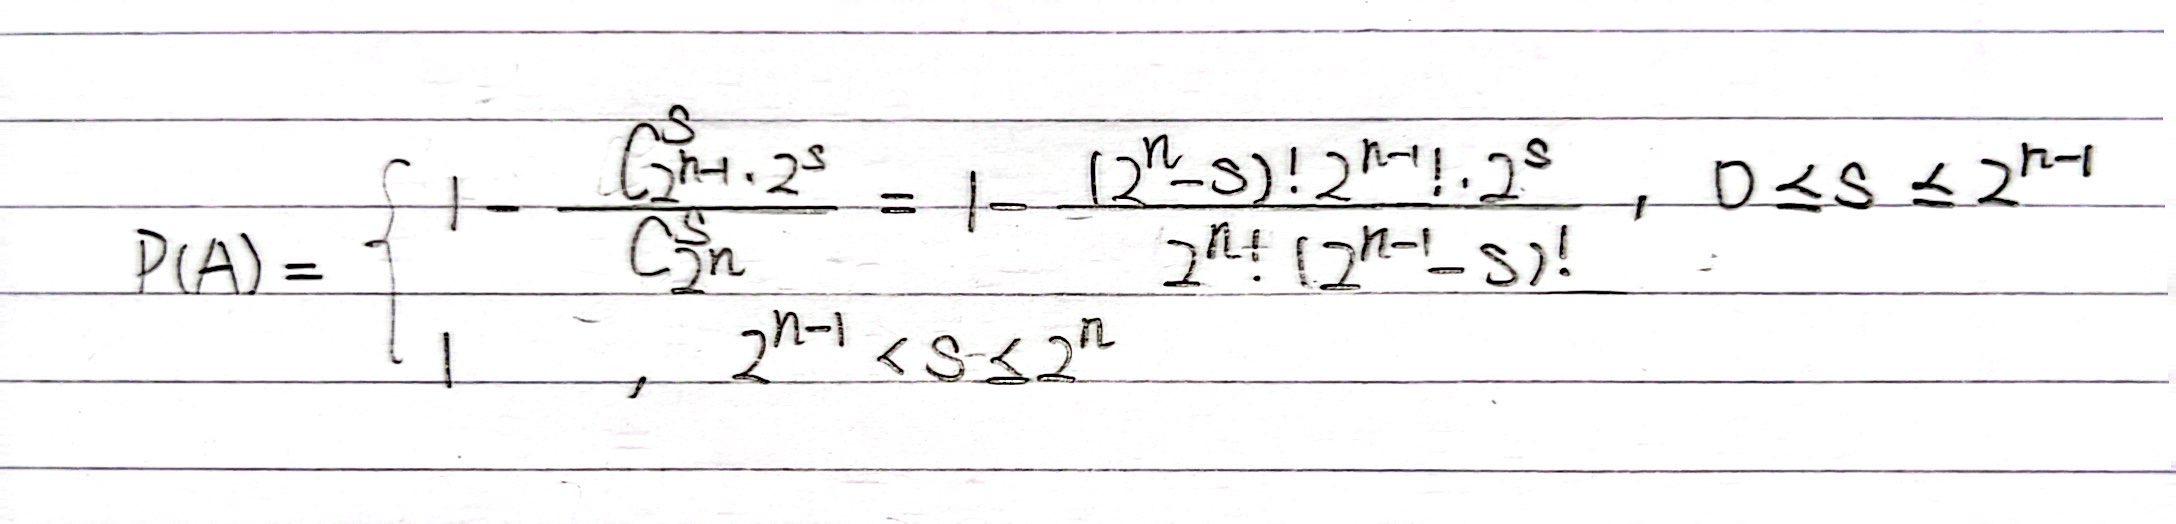 P(A) = { 1 - \frac{C_{2^{n-1}}^{s} \cdot 2^s}{C_{2^n}^{s}} = 1 - \frac{(2^n - s)! 2^{n-1}! \cdot 2^s}{2^n! (2^{n-1} - s)!} , 0 ≤ s ≤ 2^{n-1}
1 , 2^{n-1} < s ≤ 2^n